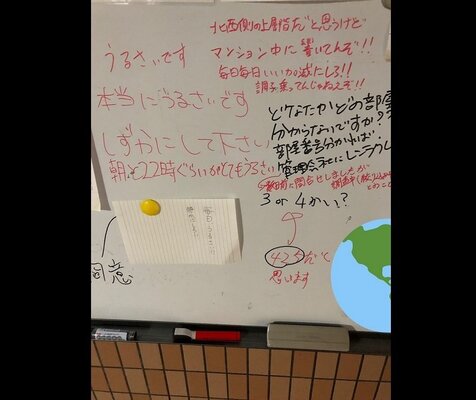 うるさいです
本当にうるさいです
しずかにして下さい
朝と22時ぐらいがとてもうるさい
北西側の上層階だと思うけど
マンション中に響いてんぞ!!
毎日毎日いいかげんにしろ!!
調子乗ってんじゃねえぞ!!
どなたかどの部屋
分からないですか?
部屋番号分かれば
管理会社に
問合せしましたが
3or4かい?
425だと
思います
毎日うるさい
同意